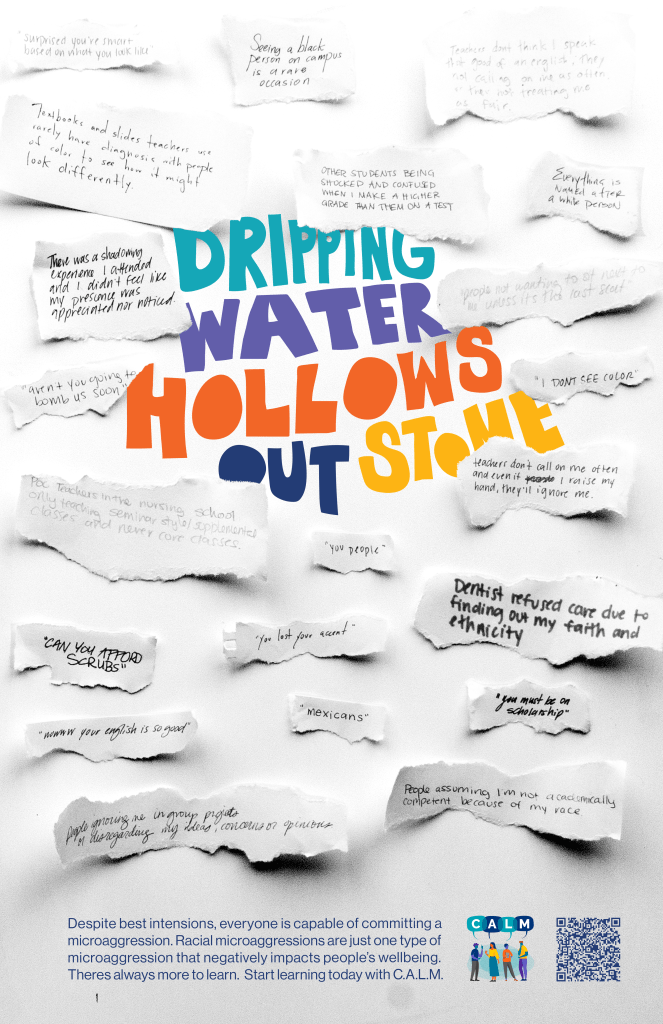 "surprised you're smart
based on what you look like"
Seeing a black
person on campus
is a rare
occasion
Teachers dont think I speak
that good of an english. They
not calling on me as often
their not treating me
as fair.
Textbooks and slides teachers use
rarely have diagnosis with people
of color to see how it might
look differently.
OTHER STUDENTS BEING
SHOCKED AND CONFUSED
WHEN I MAKE A HIGHER
GRADE THAN THEM ON A TEST
Everything is
named after
a white person
There was a shadowing
experience I attended
and I didn't feel like
my presence was
appreciated nor noticed.
people not wanting to sit next to
me unless its the last seat
DRIPPING
WATER
HOLLOWS
OUT STONE
"aren't you going to
bomb us soon"
"I DONT SEE COLOR"
teachers don't call on me often
and even if I raise my
hand, they'll ignore me.
POC Teachers in the nursing school
only teaching seminar style/supplemental
classes and never core classes.
"you people"
Dentist refused care due to
finding out my faith and
ethnicity
"CAN YOU AFFORD
SCRUBS"
"you lost your accent"
"mexicans"
"you must be on
scholarship"
"wowww your english is so good"
People ignoring me in group projects
or disregarding my ideas, concerns or opinions
People assuming I'm not academically
competent because of my race
Despite best intensions, everyone is capable of committing a
microaggression. Racial microaggressions are just one type of
microaggression that negatively impacts people's wellbeing.
Theres always more to learn. Start learning today with C.A.L.M.
CALM